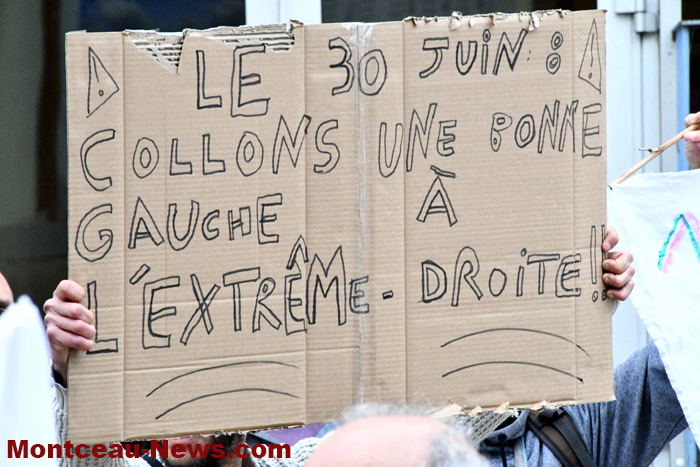 ⚠ LE 30 JUIN : ⚠
COLLONS UNE BONNE
GAUCHE À
L'EXTRÊME - DROITE!!
Montceau-News.com